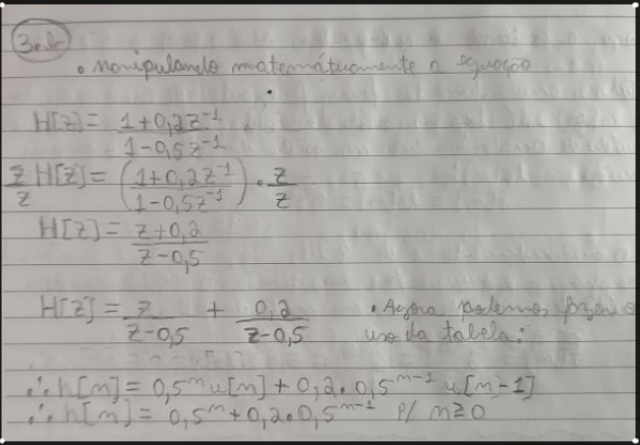 3.b
• manipulando matematicamente a equação
H[z] = 1+0,2z⁻¹ / 1-0,5z⁻¹
z/z H[z] = (1+0,2z⁻¹ / 1-0,5z⁻¹) • z/z
H[z] = z+0,2 / z-0,5
H[z] = z / z-0,5 + 0,2 / z-0,5 • Agora podemos fazer o
uso da tabela:
∴ h[n] = 0,5ⁿ u[n] + 0,2 • 0,5ⁿ⁻¹ u[n-1]
∴ h[n] = 0,5ⁿ + 0,2 • 0,5ⁿ⁻¹ p/ n≥0